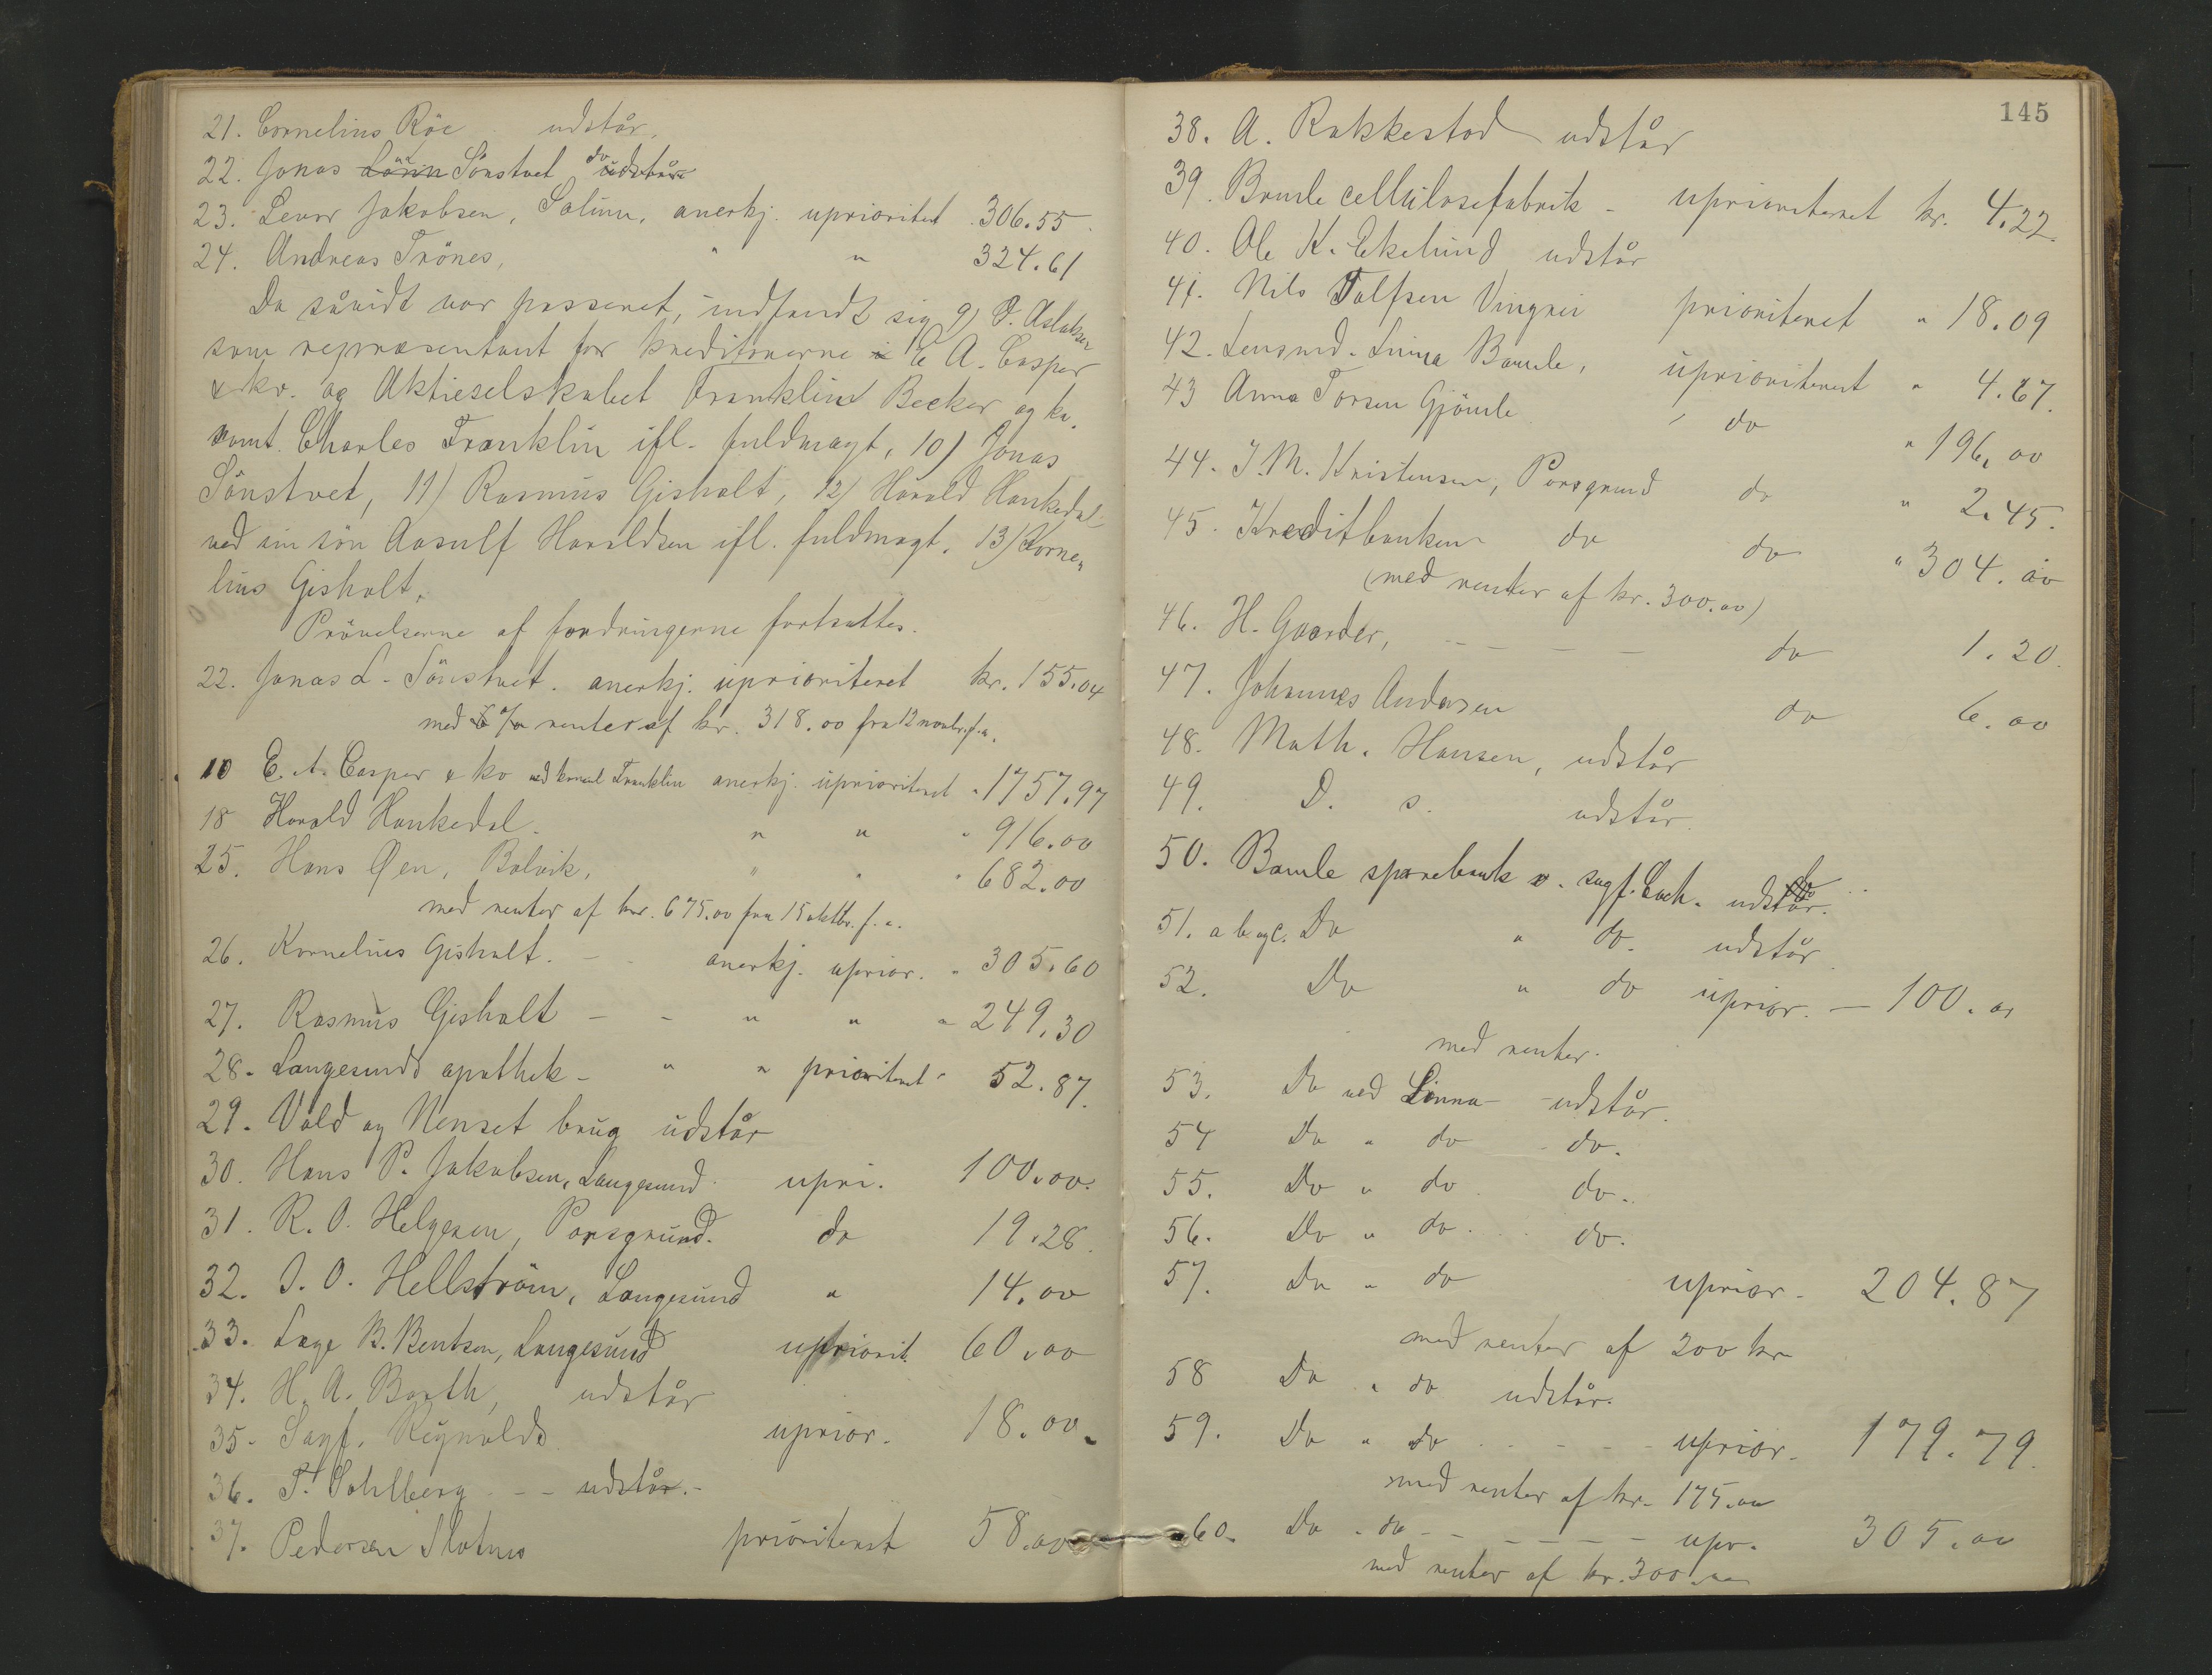 21. Cornelius Röe udstår.
22. Jonas Sönstvet do udstår
23. Levor Jakobsen, Solum, anerkj. uprioritet 306.55
24. Andreas Trönes, " " 324.61
Da såvidt var passeret, indfandt sig 9) O. Aslaksen
som repræsentant for kreditorerne E A. Casper
& ko. og Aktieselskabet Franklin Becker og ko.
samt Charles Franklin ifl. fuldmagt, 10) Jonas
Sönstvet, 11) Rasmus Gisholt, 12) Harald Hankedal
ved sin sön Aasulf Haraldsen ifl. fuldmagt. 13) Korne„
lius Gisholt.
Prövelserne af fordringerne fortsattes.
22. Jonas L. Sönstvet. anerkj. uprioriteret kr. 155.04
med renter af kr. 318.00 fra 12 novbr. f.a.
10 E. A. Casper & ko ved konsul Franklin anerkj. uprioriteret " 1757.97
18 Harald Hankedal. " " " 916.00
25. Hans Øen, Bolvik, " " " 682.00
med renter af kr. 675.00 fra 15 oktbr. f. a.
26. Kornelius Gisholt. - - anerkj. uprior. " 305.60
27. Rasmus Gisholt - - " " " 249.30
28. Langesunds apothek - " " prioriteret " 52.87.
29. Vold og Nenset brug udstår
30. Hans P. Jakobsen, Langesund. upri. 100.00.
31. R. O. Helgesen, Porsgrund. do 19.28.
32. J. O. Hellström, Langesund " 14.00
33. Lage B. Bentsen, Langesund upriorit. 60.00
34. H. A. Barth, udstår
35. Sagf. Reynolds uprior. 18.00.
36. T. Sohlberg - - udstår. -
37. Pedersen Slotnes prioriteret 58.00
145
38. A. Rakkestad udstår
39. Bamle cellulosefabrik - uprioriteret kr. 4.22.
40. Ole K. Ekelund udstår
41. Nils Tolfsen Vingrei prioriteret " 18.09
42. Lensmd. Linna Bamle, uprioriteret " 4.67.
43 Anna Torsen Gjömle " do " 196.00
44. J. M. Kristensen, Porsgrund do " 2.45.
45. Kreditbanken do do " 304.00
(med renter af kr. 300.00)
46. H. Gaarder, - - - - do 1.20.
47. Johannes Andersen do 6.00
48. Math. Hansen, udstår
49. D. s. udstår.
50. Bamle sparebank v. sagf. Coch. udstår.
51. a b og c. Do " do. udstår.
52. Do " do uprior. - 100.00
med renter.
53. Do ved Linna - udstår.
54 Do " do do.
55. Do " do do.
56. Do " do. do.
57. Do " do uprior. 204.87
med renter af 200 kr
58 Do " do udstår.
59. Do " do - - - - uprior. 179.79.
med renter af kr. 175.00
60. Do " do - - - - - - upr. 305.00
med renter af kr. 300.00